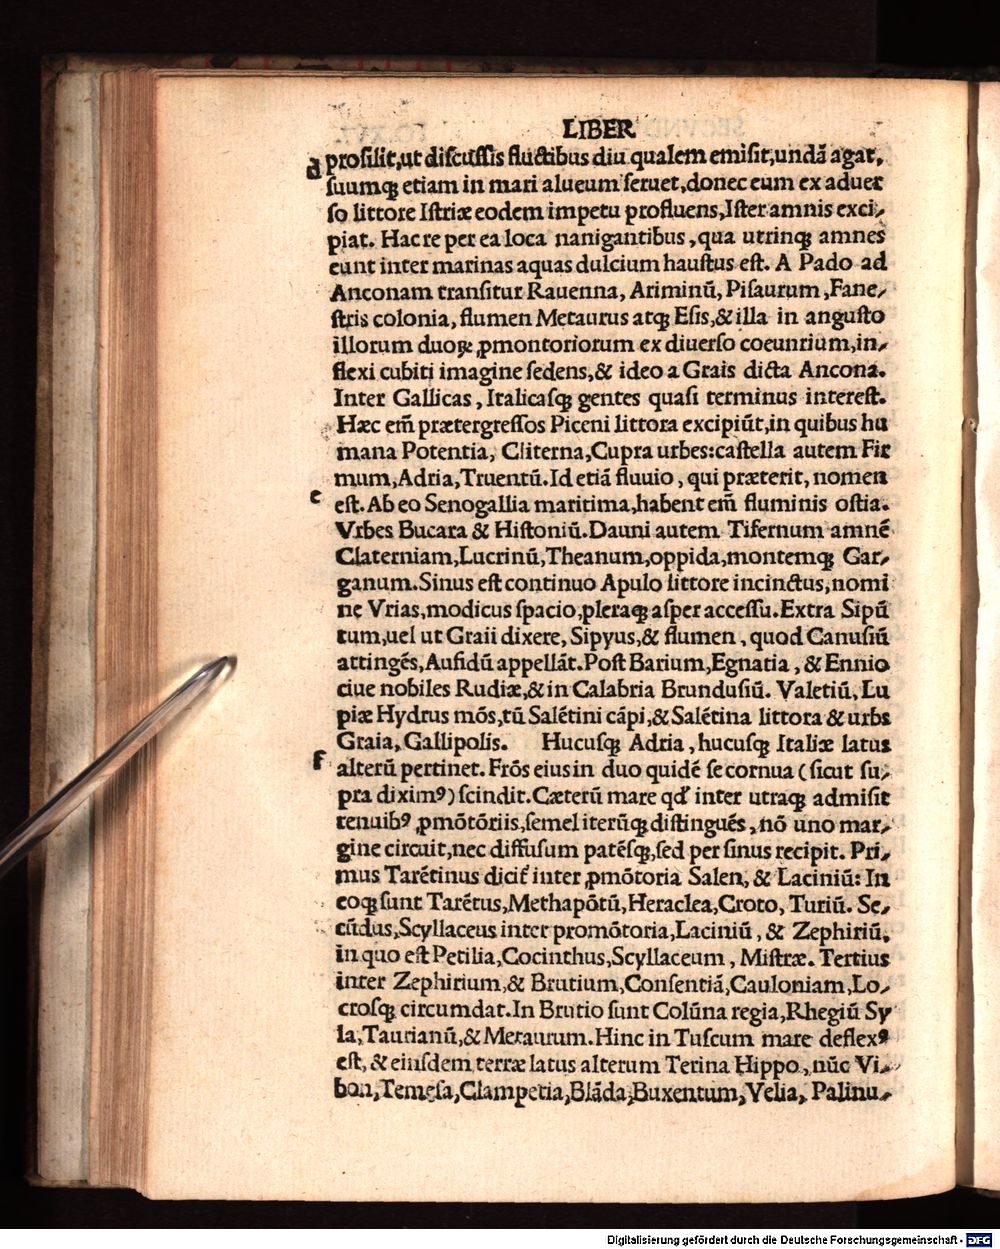 LIBER
d prosilit,ut discussis fluctibus diu qualem emisit,undã agat,
suumq; etiam in mari alueum seruet,donec eum ex aduer
so littore Istriæ eodem impetu profluens,Ister amnis exci-
piat. Hac re per ea loca nanigantibus, qua utrinq; amnes
eunt inter marinas aquas dulcium haustus est. A Pado ad
Anconam transitur Rauenna, Ariminũ, Pisaurum, Fane-
stris colonia, flumen Metaurus atq; Esis,& illa in angusto
illorum duoꝝ ꝓmontoriorum ex diuerso coeuntium,in-
flexi cubiti imagine sedens,& ideo a Grais dicta Ancona.
Inter Gallicas, Italicasq; gentes quasi terminus interest.
Hæc em̃ prætergressos Piceni littora excipiũt,in quibus hu
mana Potentia, Cliterna,Cupra urbes:castella autem Fir
mum,Adria,Truentũ. Id etiã fluuio, qui præterit, nomen
e est. Ab eo Senogallia maritima,habent em̃ fluminis ostia.
Vrbes Bucara & Histoniũ. Dauni autem Tifernum amnẽ
Claterniam,Lucrinũ,Theanum,oppida,montemq; Gar-
ganum. Sinus est continuo Apulo littore incinctus,nomi
ne Vrias,modicus spacio,pleraq; asper accessu. Extra Sipũ
tum,uel ut Graii dixere, Sipyus,& flumen, quod Canusiũ
attingẽs, Aufidũ appellãt. Post Barium,Egnatia, & Ennio
ciue nobiles Rudiæ,& in Calabria Brundusiũ. Valetiũ, Lu
piæ Hydrus mõs,tũ Salẽtini cãpi,& Salẽtina littora & urbs
Graia, Gallipolis. Hucusq; Adria, hucusq; Italiæ latus
f alterũ pertinet. Frõs eius in duo quidẽ se cornua (sicut su-
pra diximꝰ) scindit. Cæterũ mare qđ inter utraq; admisit
tenuibꝰ ꝓmõtõriis,semel iterũq; distinguẽs, nõ uno mar-
gine circuit,nec diffusum patẽsq;,sed per sinus recipit. Pri-
mus Tarẽtinus dicit᷑ inter ꝓmõtoria Salen, & Laciniũ: In
eoq; sunt Tarẽtus,Methapõtũ,Heraclea,Croto, Turiũ. Se-
cũdus,Scyllaceus inter promõtoria,Laciniũ, & Zephiriũ,
in quo est Petilia,Cocinthus,Scyllaceum, Mistræ. Tertius
inter Zephirium,& Brutium,Consentiã,Cauloniam,Lo-
crosq; circumdat. In Brutio sunt Colũna regia,Rhegiũ Sy
la,Taurianũ,& Metaurum. Hinc in Tuscum mare deflexꝰ
est, & eiusdem terræ latus alterum Terina Hippo, nũc Vi-
bon,Temesa,Clampetia,Blãda,Buxentum,Velia, Palinu-
Digitalisierung gefördert durch die Deutsche Forschungsgemeinschaft - DFG